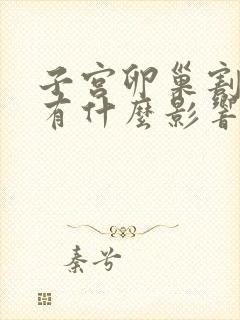 子宮卵巢割
有什麼影響
秦兮